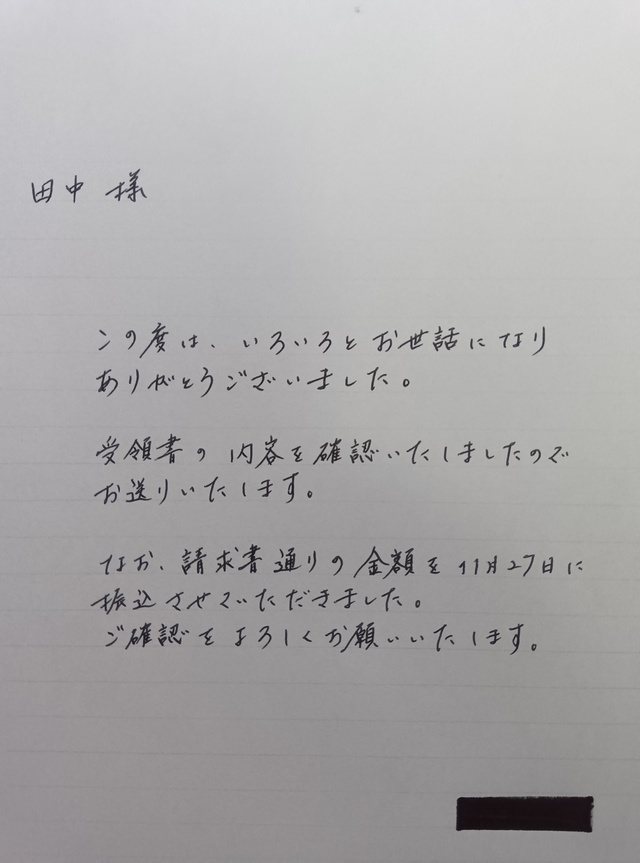 田中 様
この度は、いろいろとお世話になり
ありがとうございました。
受領書の内容を確認いたしましたので
お送りいたします。
なお、請求書通りの金額を11月27日に
振込させていただきました。
ご確認をよろしくお願いいたします。